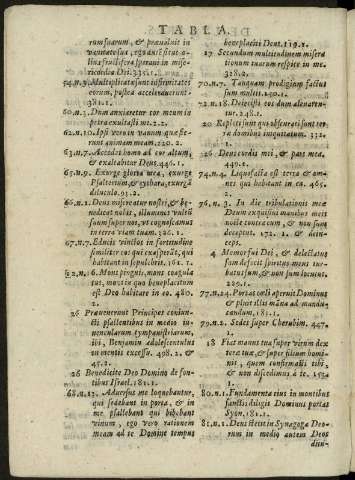 TABLA.
rum suarum, & prævaluit in
vanitate sua, ego autem sicut oli-
va fructifera speravi in mise-
ricordia Dei. 335.1.
Multiplicatæ sunt infirmitates
eorum, postea acceleraverunt.
381.1.
60.n.3. Dum anxieretur cor meum in
petra exaltasti me. 2.2.
62.n.10. Ipsi vero in vanum quæsie-
runt animam meam. 220.2.
63.n.7. Accedet homo ad cor altum,
& exaltabitur Deus. 446.1.
Exurge gloria mea, exurge
Psalterium, & cythara, exurgā
diluculo. 93.2.
66.n.1. Deus misereatur nostri, & be-
nedicat nobis, illuminet vultū
suum super nos, ut cognoscamus
in terra viam tuam. 326.1.
67.n.7. Educit vinctos in fortitudine
similiter eos qui exasperāt, qui
habitant in sepulchris. 161.1.
n. 16. Mons pinguis, mons coagula
tus, mons in quo beneplacitum
est Deo habitare in eo. 480.
2.
26 Prævenerunt Principes coniun-
cti psallentibus in medio iu-
vencularum tympanistriarum,
ibi, Benjamin adolescentulus
in mentis excessu. 498.2. &
45.2.
26 Benedicite Deo Domino de fon-
tibus Israel. 181.1.
68.n.13. Adversus me loquebantur,
qui sedebant in porta, & in
me psallebant qui bibebant
vinum, ego vero rationem
meam ad te Domine tempus
beneplaciti Deus. 119.1.
17 Secundum multitudinem misera
tionum tuarum respice in me.
318.2.
70.n.7. Tanquam prodigium factus
sum multis. 150.1.
72.n.18. Deiecisti eos dum alleuaren-
tur. 248.1.
20 Repleti sunt qui obscurati sunt ter-
ræ domibus iniquitatum. 332.
1.
26 Deus cordis mei, & pars mea.
449.1.
74.n.4. Liquefacta est terra & om-
nes qui habitant in ea. 465.
76.n.3. In die tribulationis meæ
Deum exquisivi manibus meis
nocte contra eum, & non sum
deceptus. 172.1. & dein-
ceps.
4 Memor fui Dei, & delectatus
sum defecit spiritus meus tur-
batus sum, & non sum locutus.
229.1.
77.n.24. Portas cœli aperuit Dominus
& pluit illis māna ad mandu-
candum. 181.1.
79.n.2. Sedes super Cherubim. 447.
1.
18 Fiat manus tua super virum dex
teræ tuæ, & super filium homi-
nis, quem confirmasti tibi,
& non discedimus à te. 152.
1.
80.n.1. Fundamenta eius in montibus
sanctis diligit Dominus portas
Syon. 181.1.
81.n.1. Deus stetit in Synagoga Deo-
rum in medio autem Deos